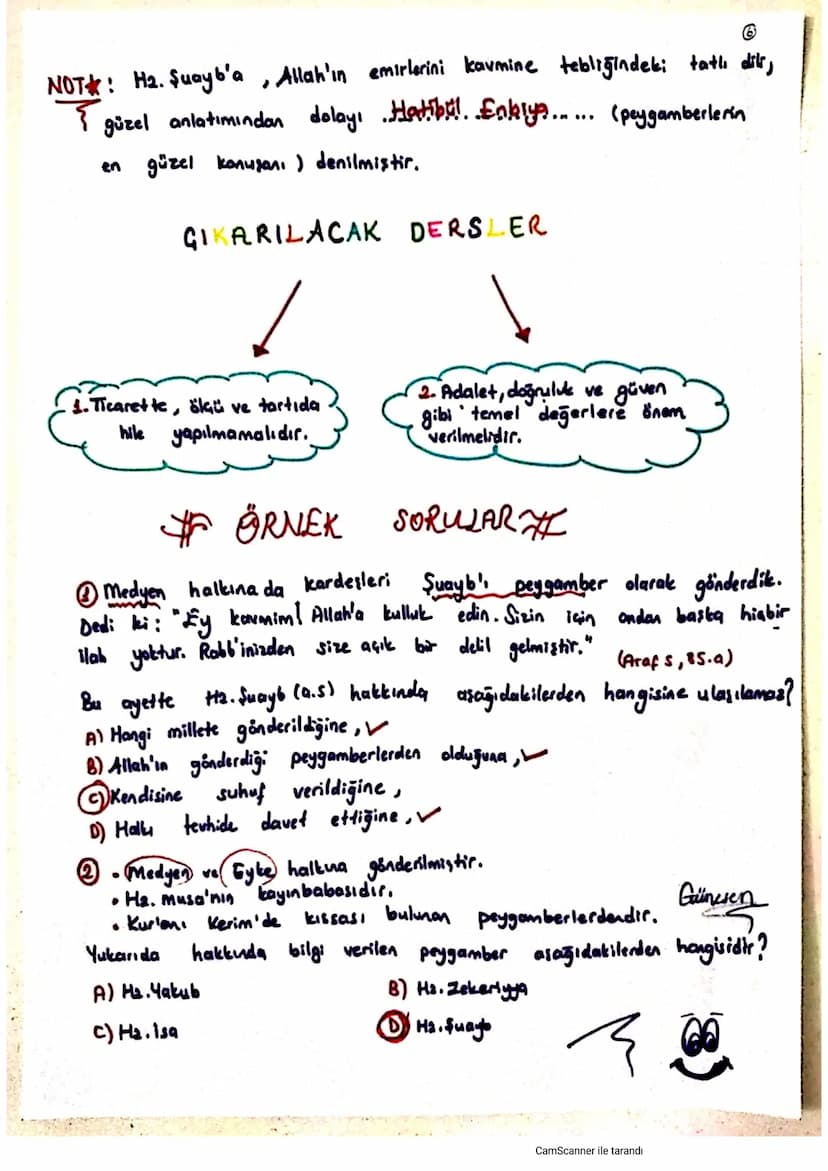 6
NOT★: Hz. Şuayb'a , Allah'ın emirlerini kavmine tebliğindeki tatlı dili,
güzel anlatımından dolayı .Hatibül. Enbiya...... (peygamberlerin
en güzel konuşanı ) denilmiştir.
ÇIKARILACAK DERSLER
1. Ticarette, ölçü ve tartıda
hile yapılmamalıdır.
2. Adalet, doğruluk ve güven
gibi temel değerlere önem
verilmelidir.
ÖRNEK SORULAR
1 Medyen halkına da kardeşleri Şuayb'ı peygamber olarak gönderdik.
Dedi ki: "Ey kavmim! Allah'a kulluk edin. Sizin için ondan başka hiçbir
ilah yoktur. Rabb'inizden size açık bir delil gelmiştir."
(Araf s, 85.a)
Bu ayette Hz. Şuayb (a.s) hakkında aşağıdakilerden hangisine ulaşılamaz?
A) Hangi millete gönderildiğine, ✓
B) Allah'ın gönderdiği peygamberlerden olduğuna, ✓
C) Kendisine suhuf verildiğine,
D) Halkı tevhide davet ettiğine, ✓
2 • Medyen ve Eyke halkına gönderilmiştir.
• Hz. Musa'nın kayınbabasıdır.
• Kur'anı Kerim'de kıssası bulunan peygamberlerdendir.
Yukarıda hakkında bilgi verilen peygamber aşağıdakilerden hangisidir?
A) Hz. Yakub
B) Hz. Zekeriyya
C) Hz. İsa
D) Hz. Şuayb
CamScanner ile tarandı